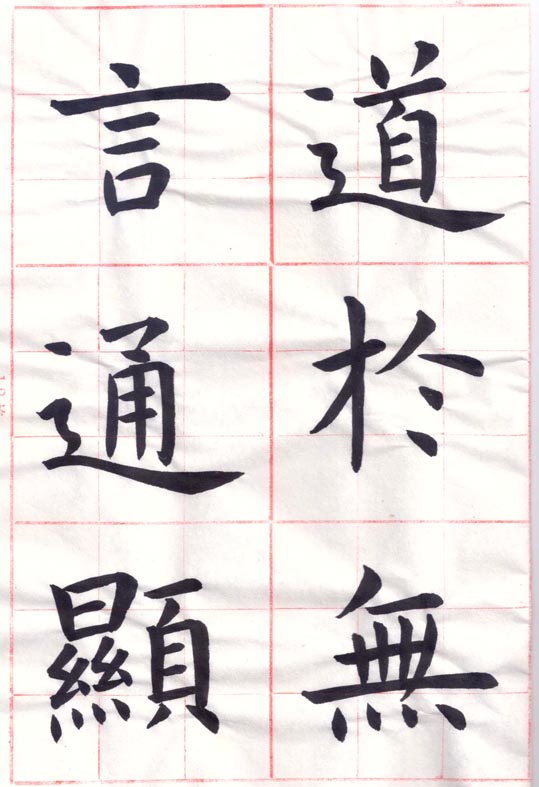 道於無
言通顯